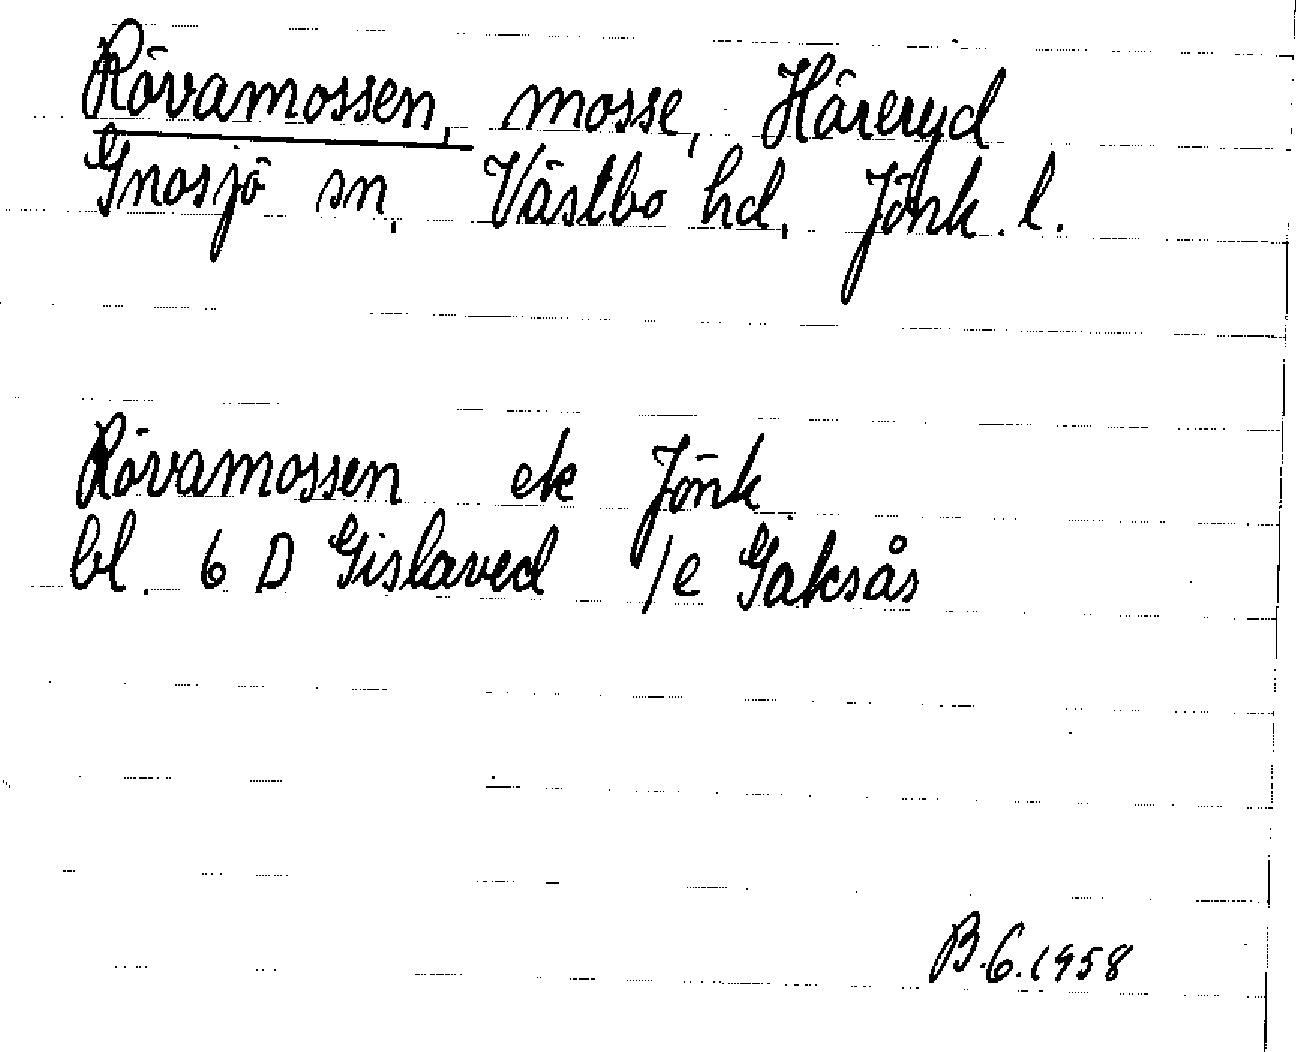 Rövamossen, mosse, Häreryd
Gnosjö sn. Västbo hd. Jönk. l.
Rövamossen ek Jönk
bl. 6 D Gislaved 1e Gaksås
B.G. 1958